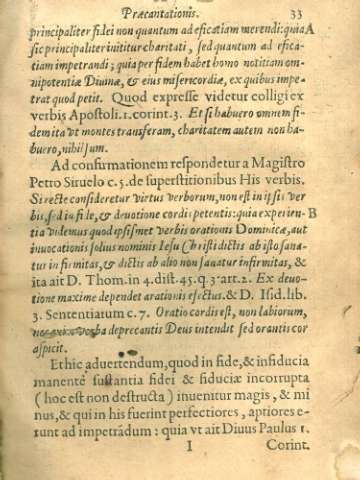 Præcantationis. 33
principaliter fidei non quantum ad eficatiam merendi: quia A
sic principaliter inititur charitati, sed quantum ad efica-
tiam impetrandi; quia per fidem habet homo notitiam om-
nipotentiæ Diuinæ, & eius misericordiæ, ex quibus impe-
trat quod petit. Quod expresse videtur colligi ex
verbis Apostoli. 1. corint. 3. Et si habuero omnem fi-
dem ita vt montes transferam, charitatem autem non ha-
buero, nihil sum.
Ad confirmationem respondetur a Magistro
Petro Siruelo c. 5. de superstitionibus His verbis.
Si recte consideretur virtus verborum, non est in ipsis ver
bis, sed in fide, & deuotione cordis petentis: quia experien- B
tia videmus quod ipsismet verbis orationis Dominicæ, aut
inuocationis solius nominis Iesu Christi dictis ab isto sana-
tur infirmitas, & dictis ab alio non sanatur infirmitas, &
ita ait D. Thom. in 4. dist. 45. q. 3. art. 2. Ex deuo-
tione maxime dependet orationis efectus. & D. Isid. lib.
3. Sententiarum c. 7. Oratio cordis est, non labiorum,
verba deprecantis Deus intendit sed orantis cor
aspicit.
Et hic aduertendum, quod in fide, & in fiducia
manente sustantia fidei & fiduciæ incorrupta
( hoc est non destructa ) inuenitur magis, & mi
nus, & qui in his fuerint perfectiores, aptiores e-
runt ad impetrãdum: quia vt ait Diuus Paulus 1.
I Corint.